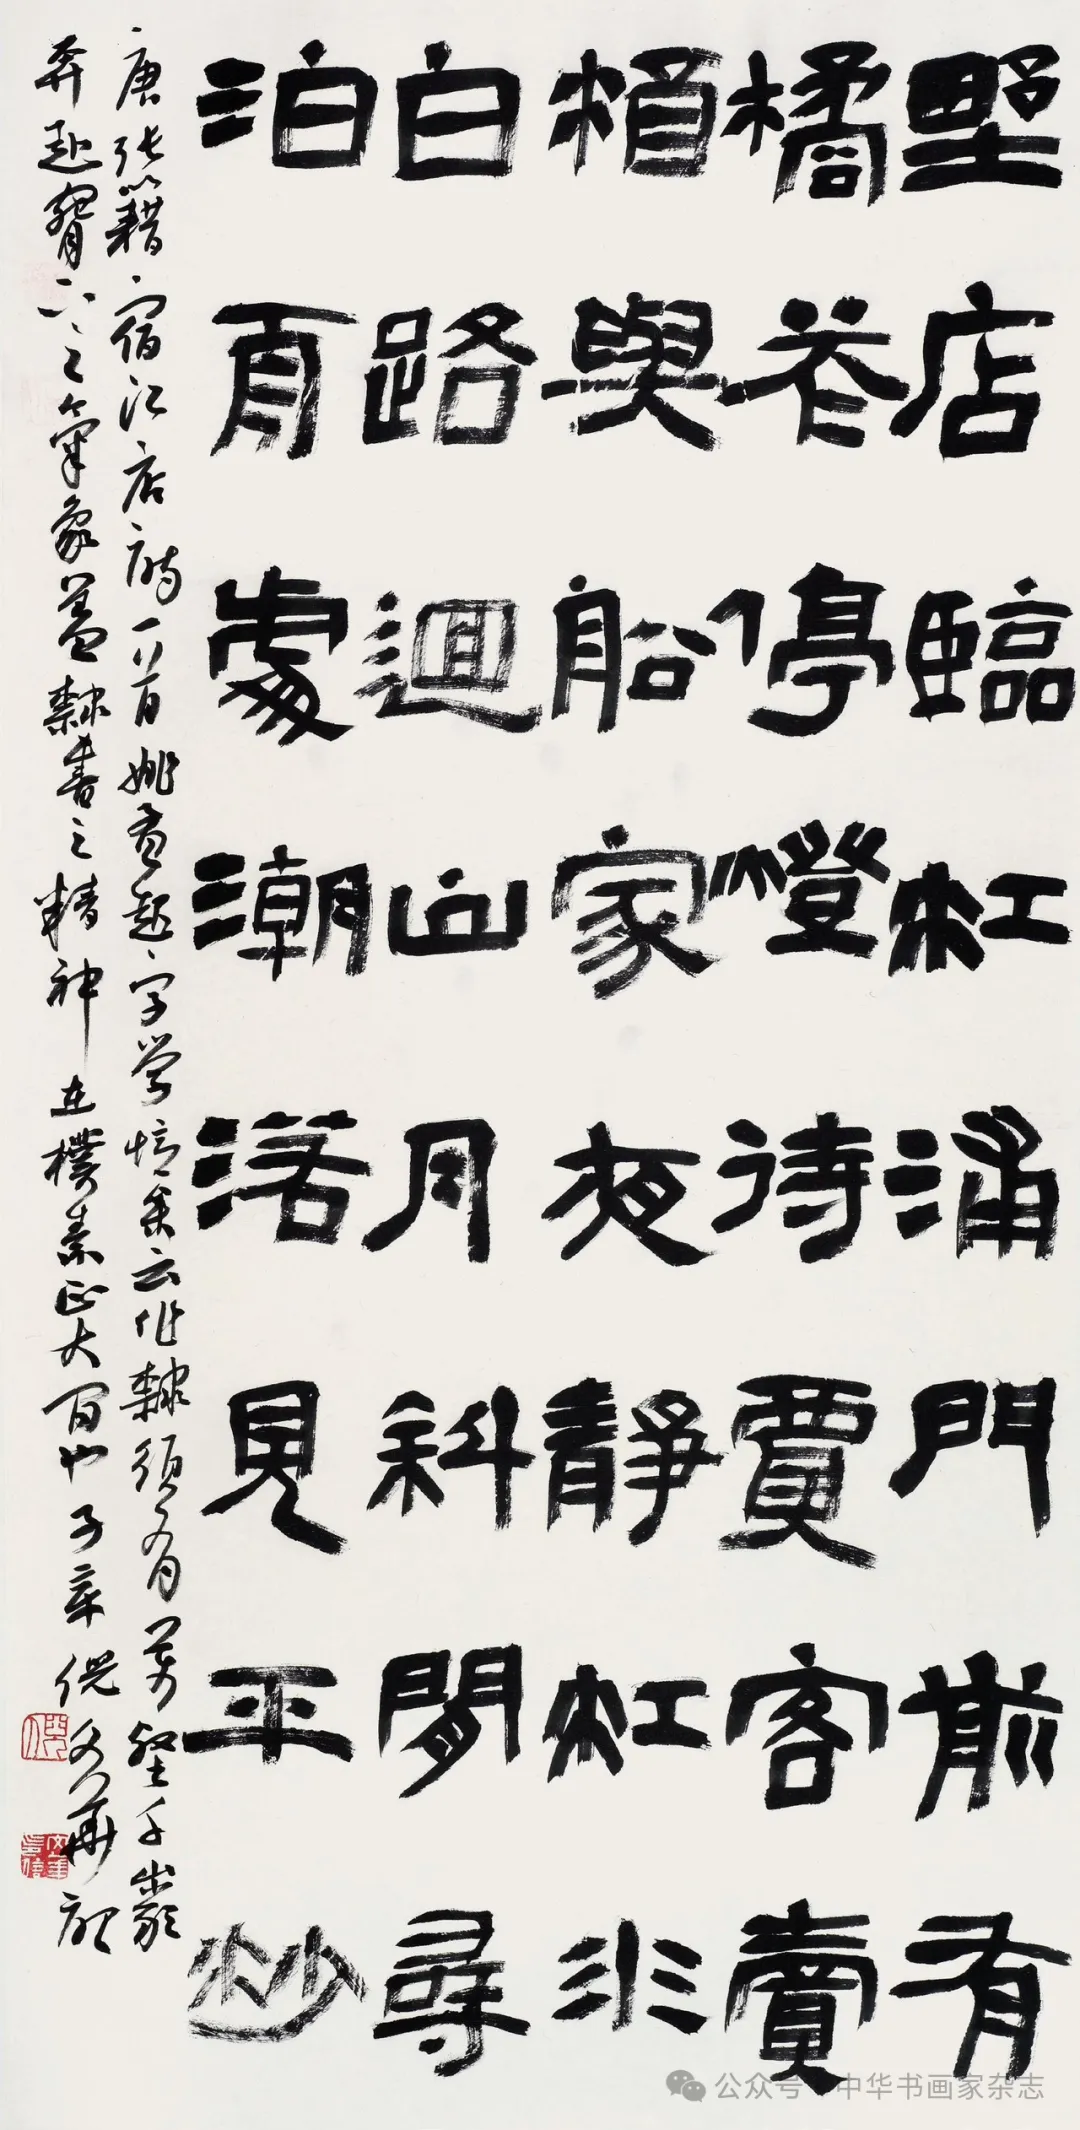 野店臨江浦門前有
橘花停燈待賈客賣
酒與船家夜靜江水
白路迴山月斜閒尋
泊處潮落見平沙
唐张籍宿江店诗一首姚孟起字学憶参云作隸须有萬壑千巖
奔赴腕下之氣象蓋隸書之精神在樸素正大间也倪文華
公众号·中华书画家杂志